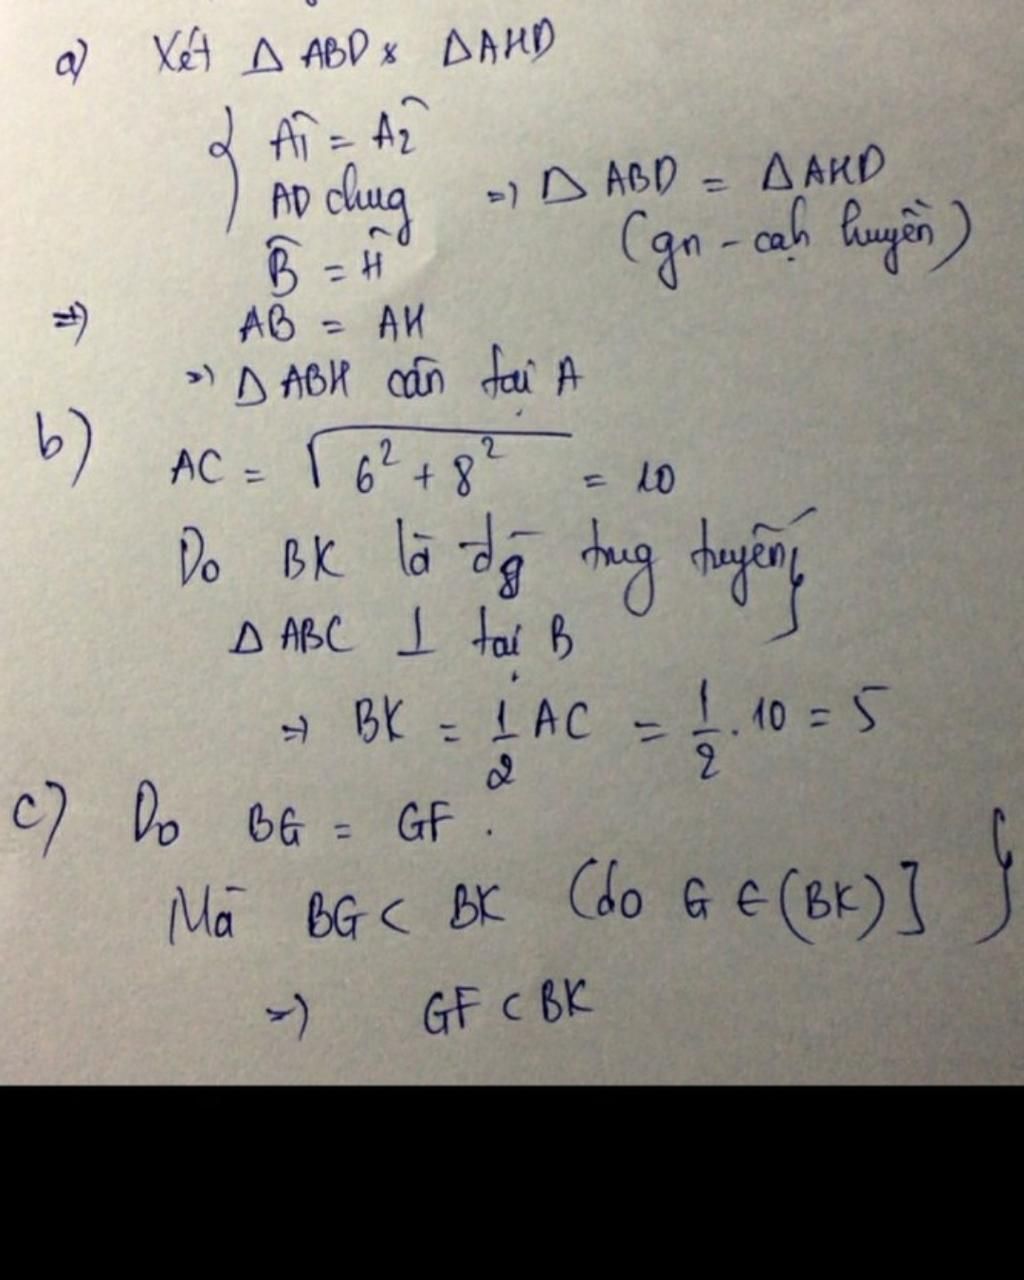 a) Xét Δ ABD & ΔAHD
{ Â1 = Â2
AD chug => Δ ABD = ΔAHD
B̂ = Ĥ (gn - cạh huyền)
=> AB = AH
=> Δ ABH cân tại A
b) AC = √(6² + 8²) = 10
Do BK là đg trug tuyến }
Δ ABC ⊥ tại B
=> BK = 1/2 AC = 1/2 . 10 = 5
c) Do BG = GF . }
Mà BG < BK (do G ∈ (BK)]
=> GF < BK